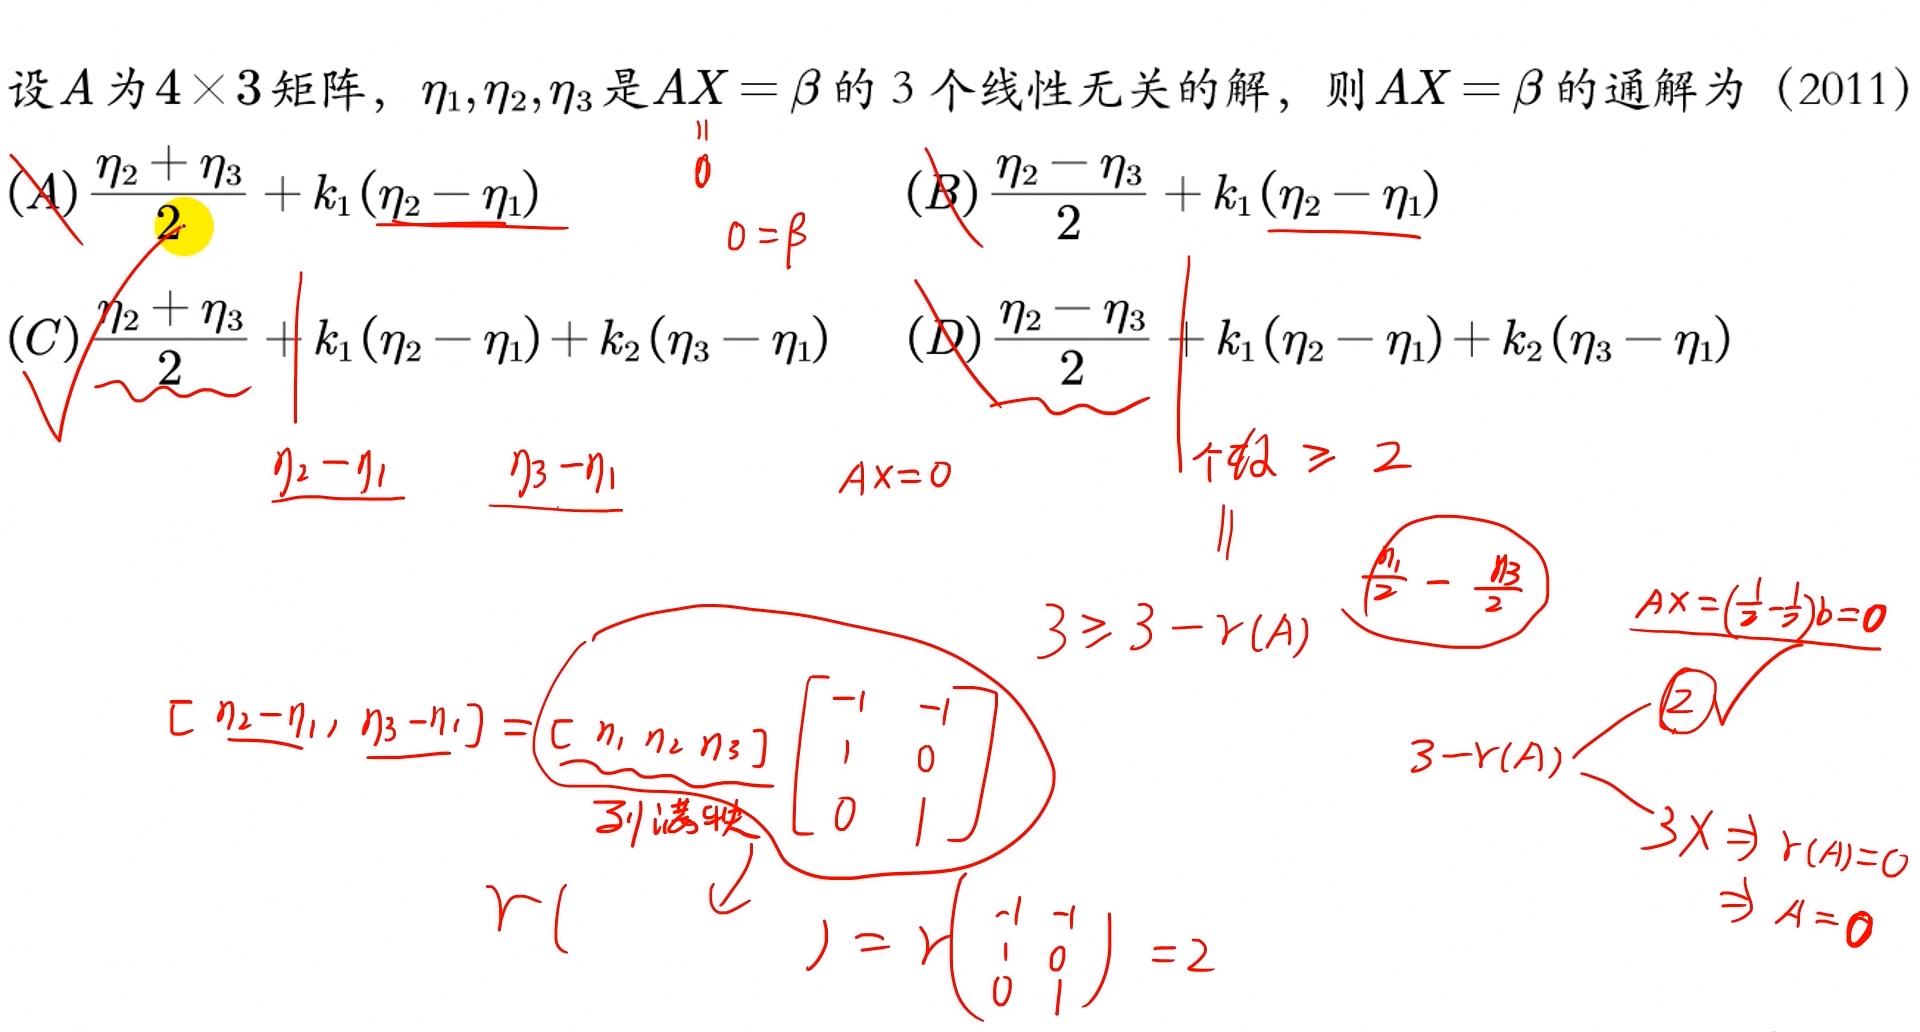 设A为4×3矩阵，η₁,η₂,η₃是AX=β的 3 个线性无关的解，则AX=β的通解为（2011）
= 0
(A) (η₂+η₃)/2 + k₁(η₂−η₁) (B) (η₂−η₃)/2 + k₁(η₂−η₁)
0=β
(C) (η₂+η₃)/2 + k₁(η₂−η₁) + k₂(η₃−η₁) (D) (η₂−η₃)/2 + k₁(η₂−η₁) + k₂(η₃−η₁)
η₂−η₁ η₃−η₁ AX=0 个数 ≥ 2
=
3≥3−r(A) η₁/2 − η₃/2 AX=(1/2−1/2)b=0
[η₂−η₁, η₃−η₁] = [η₁ η₂ η₃] [−1 −1
1 0
0 1]
列满秩
3−r(A) 2
3X ⇒ r(A)=0
⇒ A=0
r( ) = r(−1 −1
1 0
0 1) =2